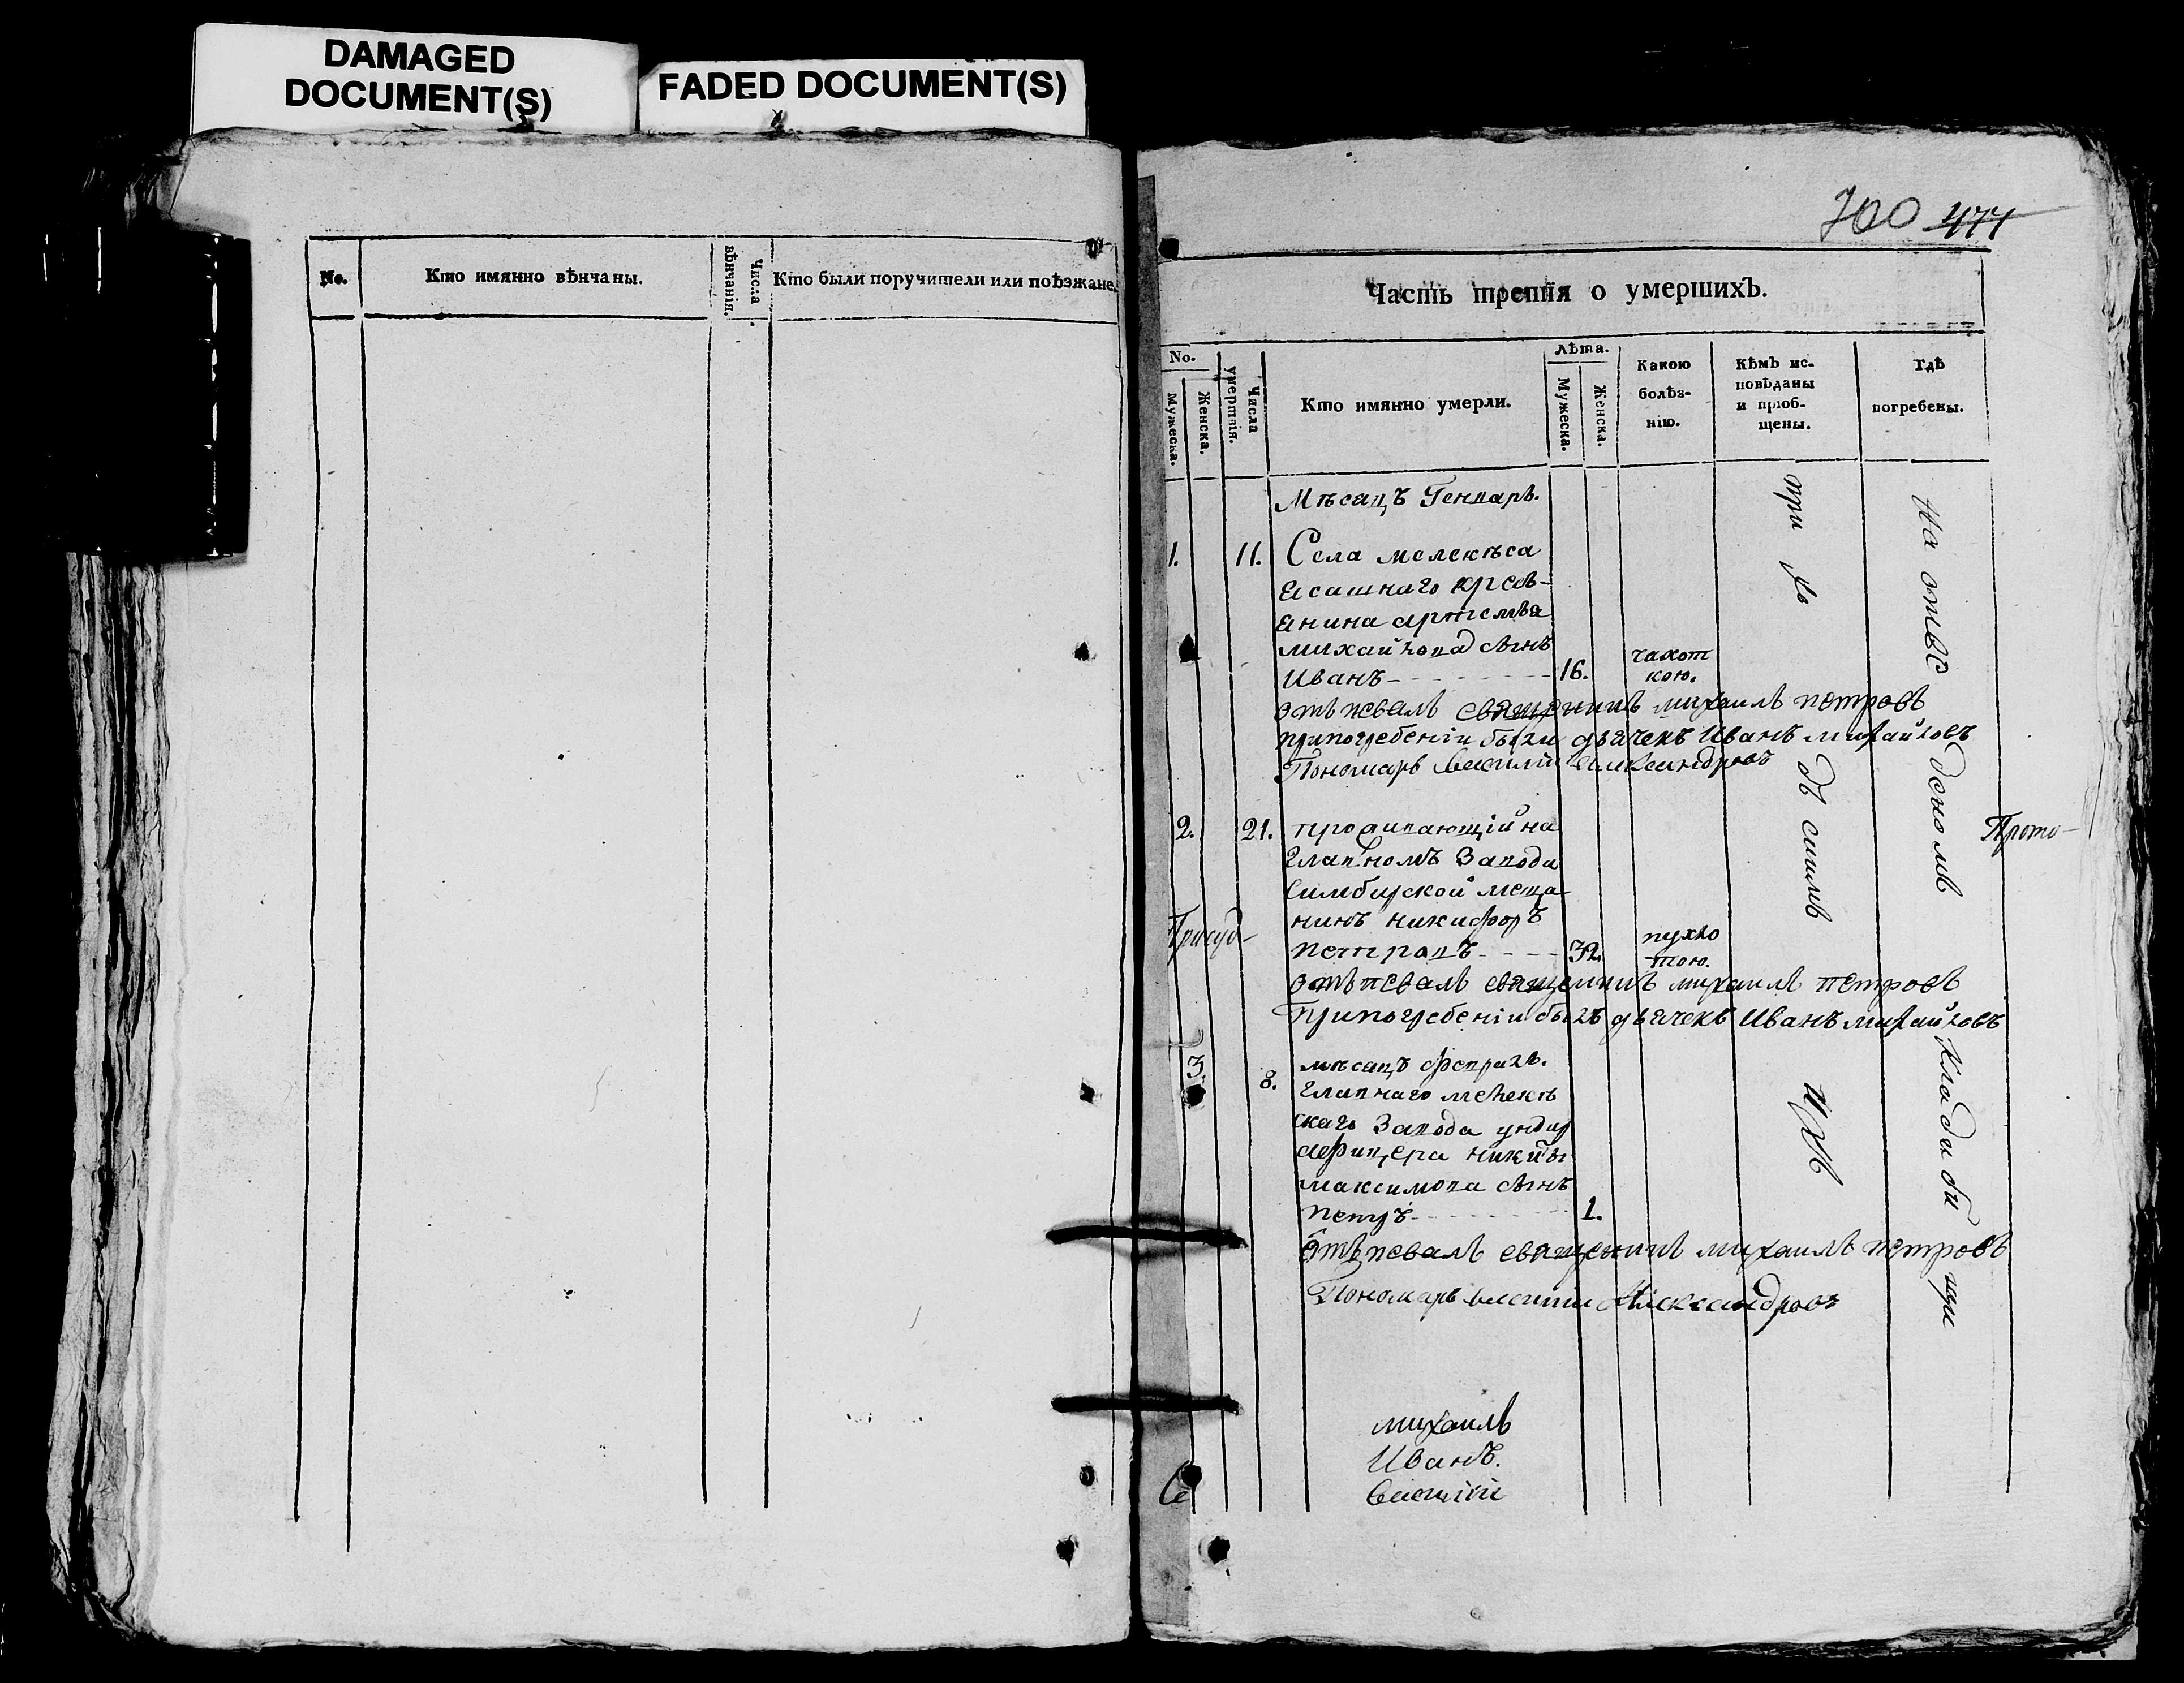 DAMAGED
DOCUMENT(S)
FADED DOCUMENT(S)
No.
Кто имянно вѣнчаны.
Числа вѣнчанія.
Кто были поручители или поѣзжане.
700 477
Часть третія о умершихъ.
No.
Мужеска.
Женска.
Числа умертвія.
Кто имянно умерли.
лѣта.
Мужеска.
Женска.
Какою
болѣз-
нію.
Кѣмъ ис-
повѣданы
и пріоб-
щены.
гдѣ
погребены.
Мѣсацъ Генварь.
1. 11. Села мелекѣса
ясашнаго кресть-
янина артемья
михайлова сынъ
Иванъ 16. чахот
кою.
отъпевалъ священникъ михаилъ петровъ
припогребеніи были дьячекъ Иванъ михайловъ
Пономарь василій александровъ
2. 21. проживающій на
главномъ заводи
симбирской меща
нинъ никифоръ
петровъ 32. пухло
тою.
отъпевалъ священникъ михаилъ петровъ
припогребеніи былъ дьячекъ Иванъ михайловъ
3. 8. мѣсацъ февраль.
главнаго мелекѣ
скаго завода ундир
афицера никиты
максимова сынъ
петръ 1.
отъпевалъ священникъ михаилъ петровъ
Пономарь василій Александровъ
при
ихъ
На отве
деномъ
кладби
щи
Присуд-
Прото-
михаилъ
Иванъ.
василій